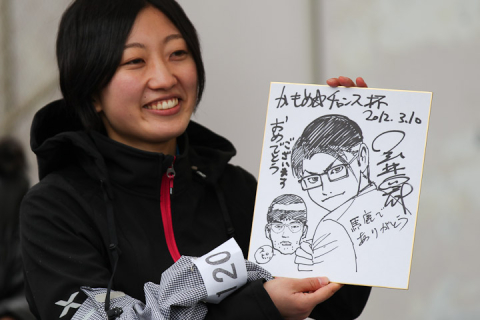 かもめ✿チャンス杯
2012.3.10
おめでとう
ございます
馬鹿で
ありがとう
120